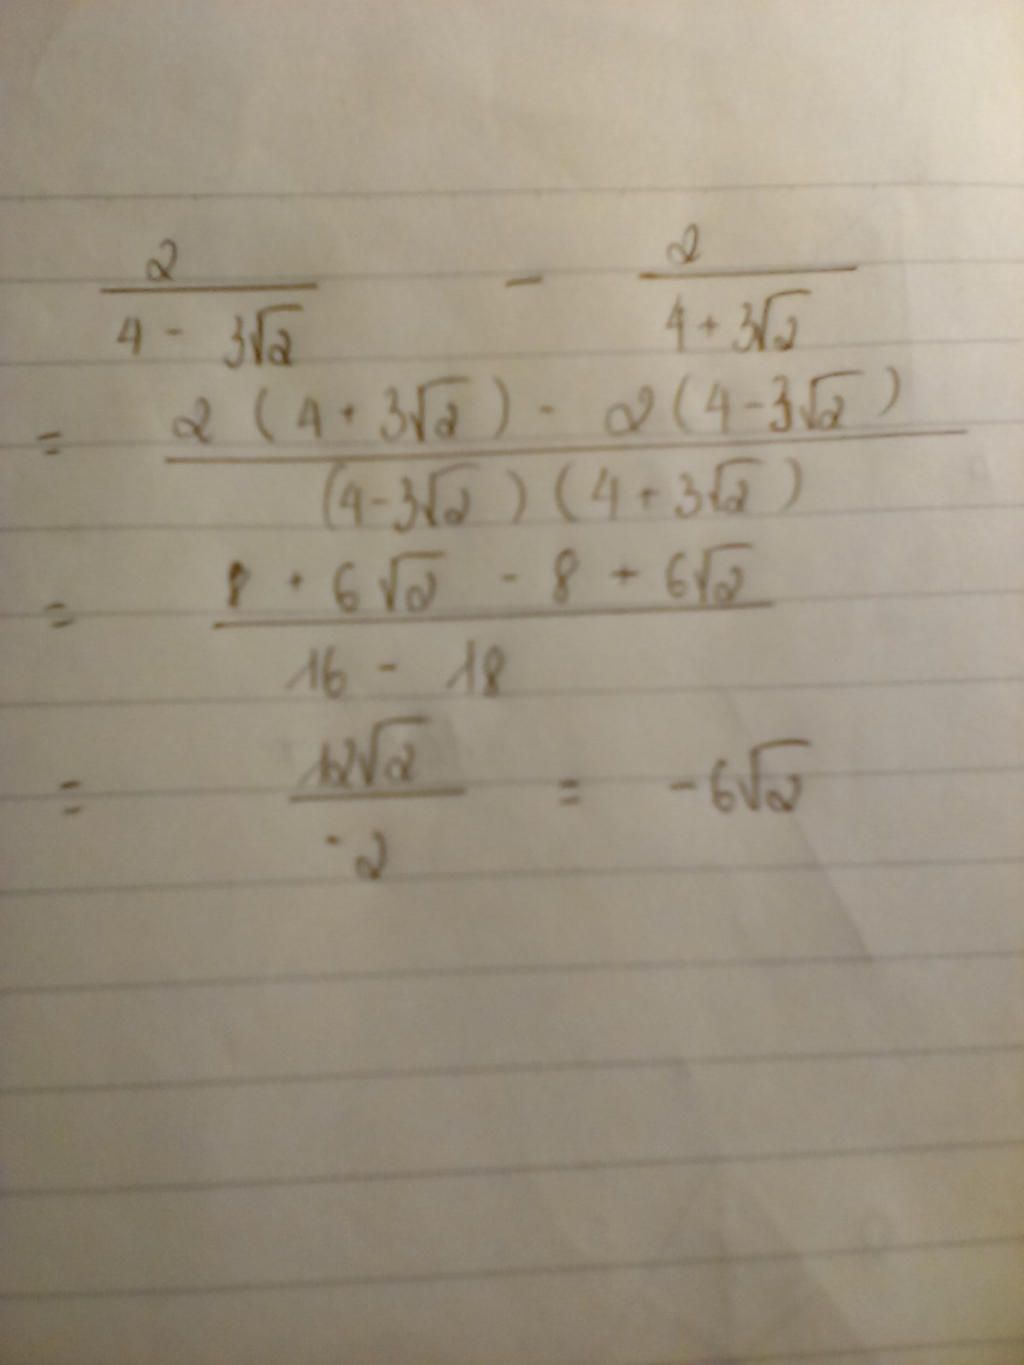 2/(4 - 3√2) - 2/(4 + 3√2)
= (2 (4 + 3√2) - 2 (4 - 3√2))/((4 - 3√2) (4 + 3√2))
= (8 + 6√2 - 8 + 6√2)/(16 - 18)
= 12√2/-2 = -6√2